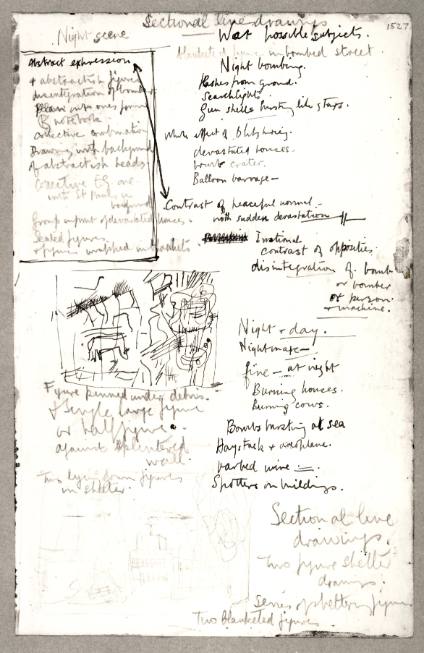 Sectional line drawings
1527
Night scene
War possible subjects.
in bombed street
Night bombing.
flashes from ground.
Searchlights
Gun shells bursting like stars.
Whole effect of Blitzkrieg.
devastated houses.
bomb crater.
Balloon barrage —
Contrast of peaceful normal
with sudden devastation
Irrational
contrast of opposites.
disintegration of bomb
or bomber
or person
+ machine.
Night + day.
Nightmare —
fire — at night
Burning houses.
Burning cows.
Bombs bursting at sea
Haystack + aeroplane.
barbed wire
Spotters on buildings.
Abstract expression
+ abstractish figure
disintegration of bomber
B notebook.
Drawing with background
of abstractish heads
with St Paul
background
Group in front of devastated houses.
Seated figure
wrapped in blankets
Figure pinned under debris.
Single large figure
or half figure.
against splintered
wall.
Two lying down figures
in shelter.
Sectional line
drawings.
Two figure shelter
drawings.
Series of shelter figures
Two Blanketed figures